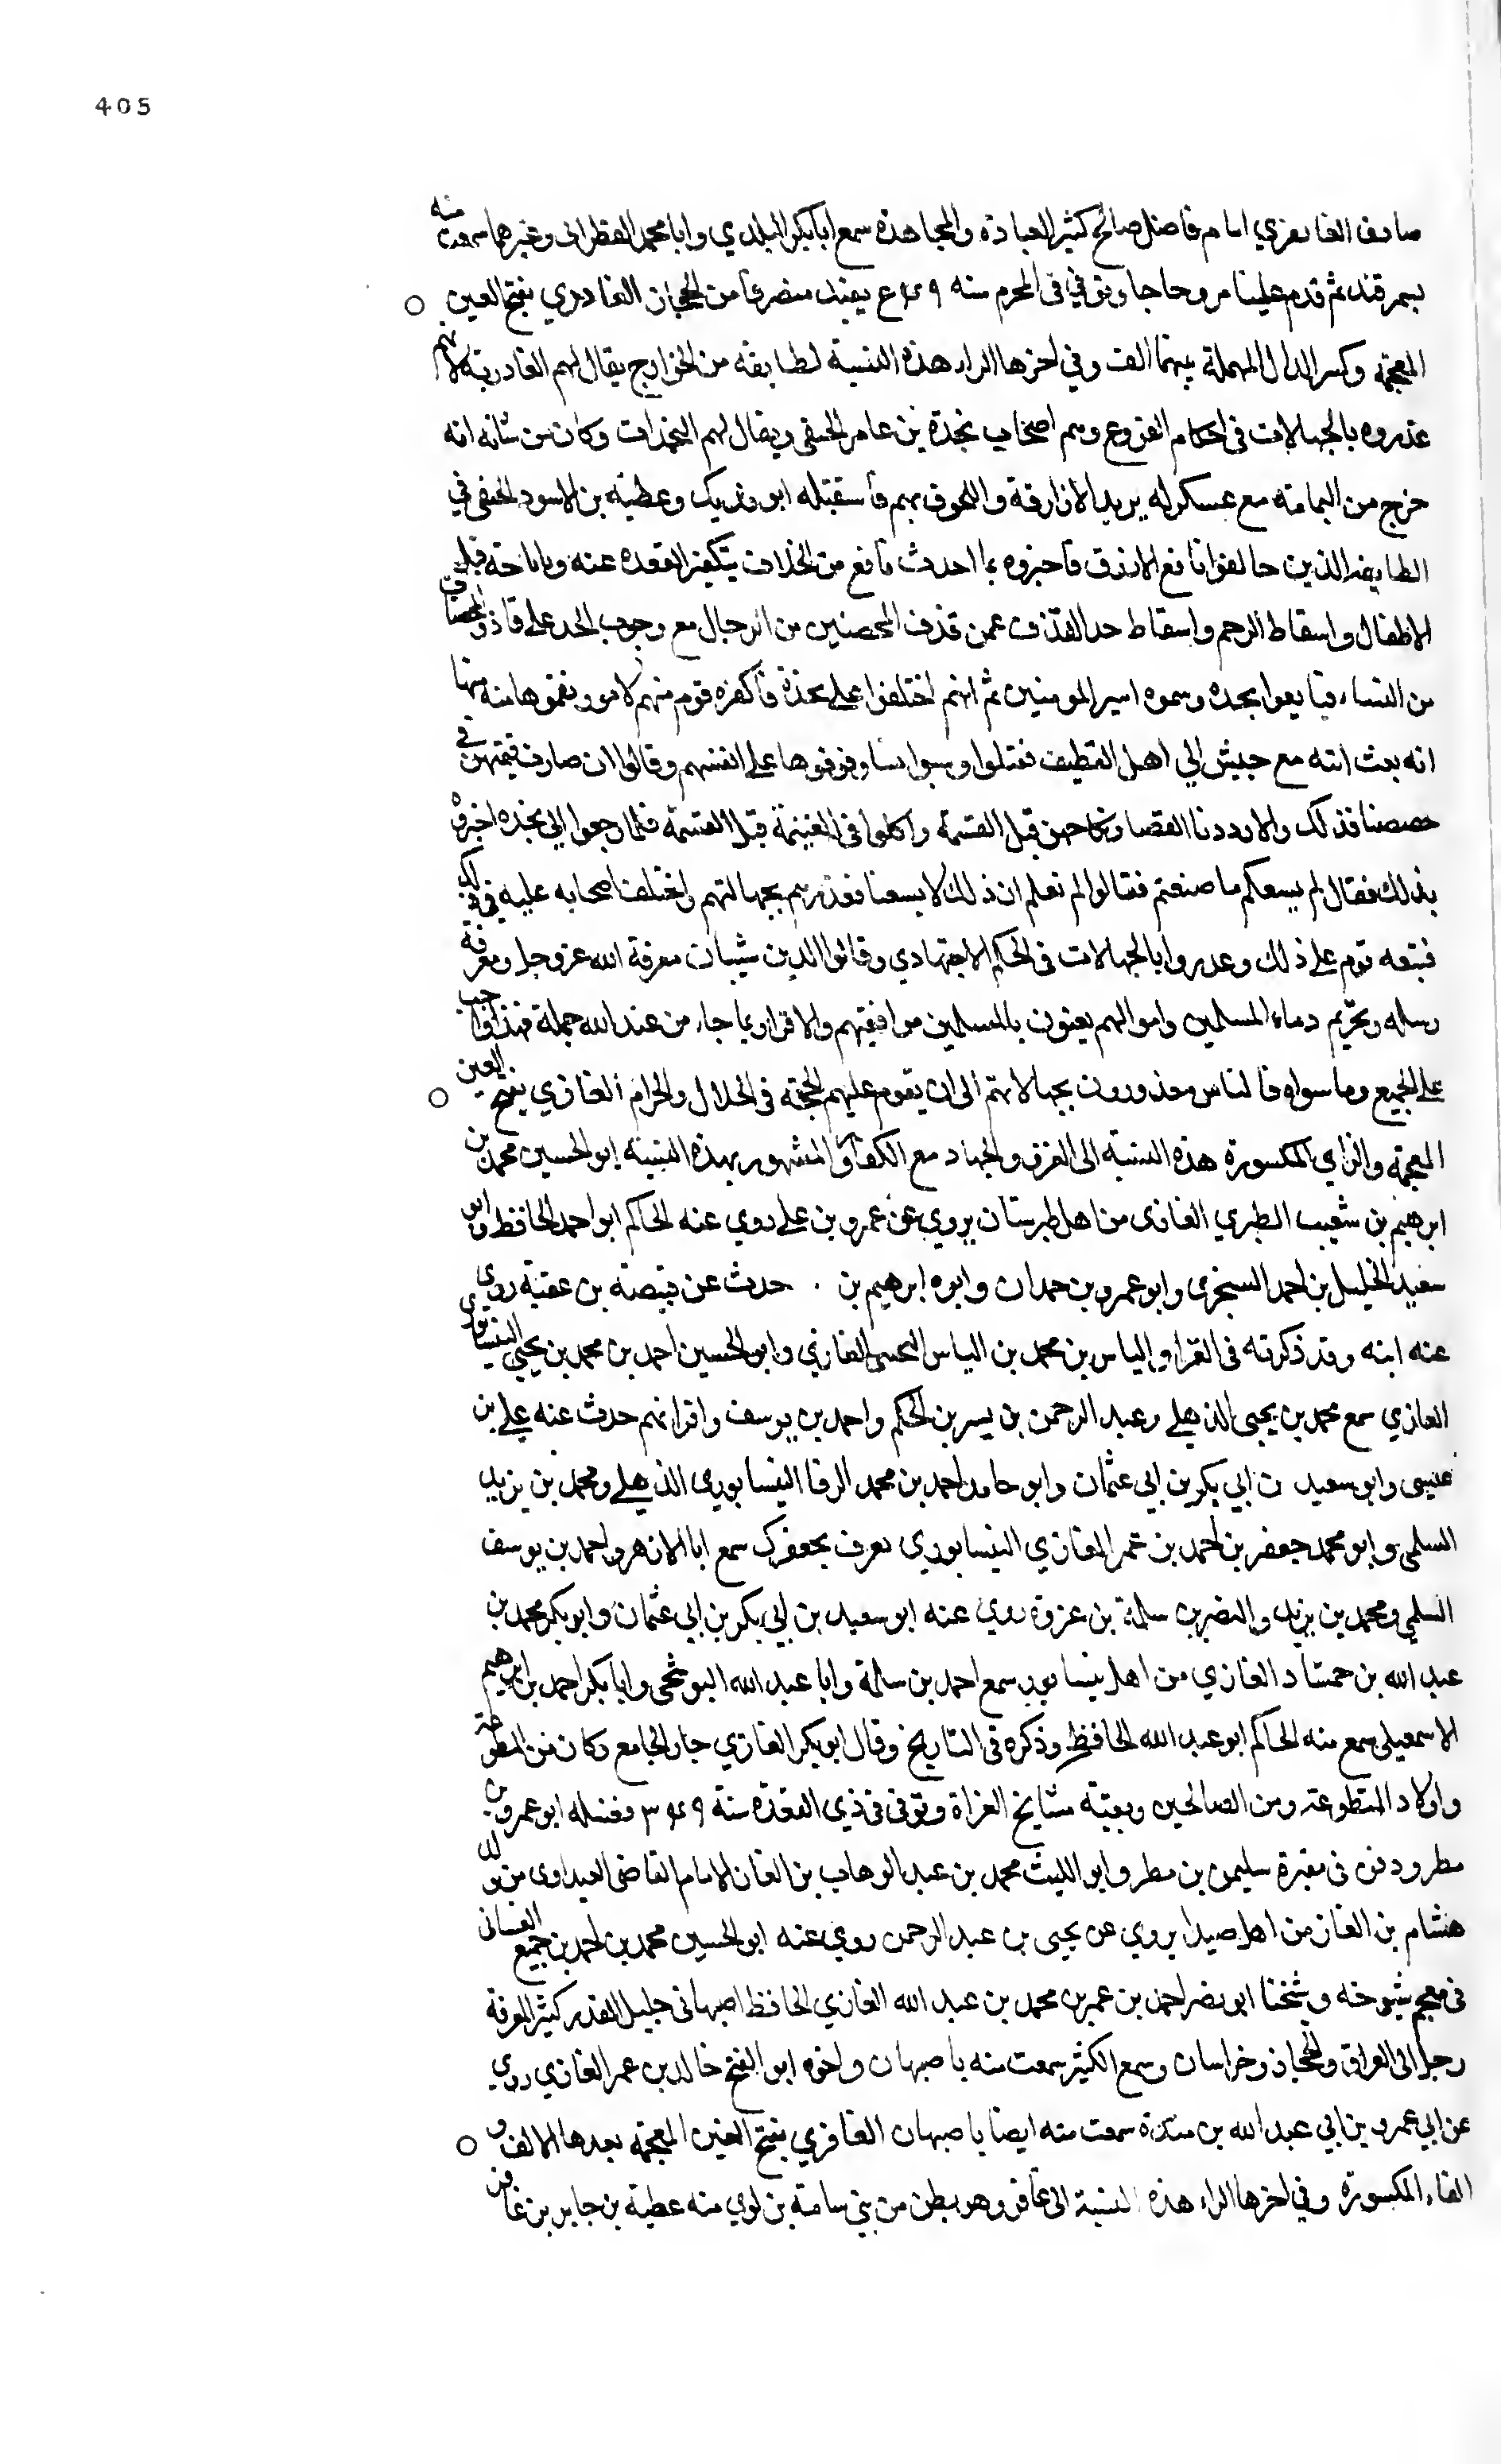 405
صادف الغاىفزي امام فاضل صالح كثير العبادة والمجاهدة سمع ابا بكر البلدي وابا محمد القطراني وغيرهما سمعت منه
بسمرقند ثم قدم علينا مرو حاجا وتوفي في المحرم سنه بفيد منصرفا من الحجاز الغادري بفتح العين
المعجمة وكسر الدال المهملة بينهما الف وفي اخرها الراء هذه النسبة لطايفه من الخوارج يقال لهم الغادرية لانهم
عذروه بالجهالات في احكام الفروع وهم اصحاب نجدة بن عامر الحنفي ويقال لهم النجدات وكان من شانه انه
خرج من اليمامة مع عسكر له يريد الازارقة واللحوق بهم فاستقبله ابو فديك وعطية بن الاسود الحنفي في
الطايفه الذين خالفوا نافع الازرق فاخبروه بما احدث نافع من الخلاف بتكفير القعدة عنه وباباحة قتل
الاطفال واسقاط الرجم واسقاط حد القذف عمن قذف المحصنين من الرجال مع وجوب الحد على قاذف المحصنات
من النساء فبايعوا نجده وسموه امير المومنين ثم انهم اختلفوا على نجدة فاكفره قوم منهم لامور ونقموها منه منها
انه بعث ابنه مع جيش الي اهل القطيف فقتلوا وسبوا نساو قوموها على انفسهم وقالوا ان صارت قيمتهن في
حصصنا فذلك والا رددنا الفضل ونكاحهن قبل القسمة واكلوا في الغنيمة قبل القسمة فلما رجعوا الي نجده اخبروه
بذلك فقال لم يسعكم ما صنعتم فقالوا لم نعلم ان ذلك لا يسعنا فعذرهم بجهالتهم واختلف اصحابه عليه في ذلك
فتبعه قوم على ذلك وعذروا بالجهالات في الحكم الاجتهادي وقالوا الدين شيان معرفة الله عز وجل ومعرفة
رسله وتحريم دماء المسلمين واموالهم يعنون بالمسلمين موافقيهم والاقرار بما جاء من عند الله جملة فهذا واجب
على الجميع وما سواه فالناس معذورون بجهالاتهم الى ان يقوم عليهم الحجة في الحلال والحرام الغازي بفتح العين
المعجمة والزاي المكسورة هذه النسبة الى الغزو والجهاد مع الكفار والمشهور بهذه النسبة ابو الحسين محمد بن
ابرهيم بن شعيب الطبري الغازى من اهل طبرستان يروي عن عمرو بن علي روي عنه الحاكم ابو احمد الحافظ وابو
سعيد الخليل بن احمد السجزى وابو عمرو بن حمدان وابوه ابرهيم بن . حدث عن قبيصة بن عقبة روى
عنه ابنه وقد ذكرته في القراء والياس بن محمد بن الياس الغازي وابو الحسين احمد بن محمد بن يحيى النيسابوري
الغازي سمع محمد بن يحيى الذهلي وعبد الرحمن بن بشر بن الحكم واحمد بن يوسف واقرانهم حدث عنه علي بن
عيسى وابو سعيد بن ابي بكر بن ابي عثمان وابو حامد احمد بن محمد الرفا النيسابورى الذهلي ومحمد بن يزيد
السلمى وابو محمد جعفر بن احمد بن عمر الغازي النيسابوري يعرف بجعفرك سمع ابا الازهر واحمد بن يوسف
السلمي ومحمد بن يزيد والنضر بن سلمة بن عزوة روى عنه ابو سعيد بن ابي بكر بن ابي عثمان وابو بكر محمد بن
عبد الله بن حمشاد الغازي من اهل نيسابور سمع احمد بن سلمة وابا عبد الله البوشنجى وابا بكر احمد بن ابرهيم
الاسمعيلى سمع منه الحاكم ابو عبد الله الحافظ وذكره في التاريخ وقال ابو بكر الغازي جار الجامع وكان من المطوعة
واولاد المتطوعة ومن الصالحين وبقية مشايخ الغزاة وتوفى في ذي القعدة سنة فغسله ابو عمرو بن
مطر ودفن في مقبرة سليمن بن مطر وابو الليث محمد بن عبد الوهاب بن الغاز الامام القاضى الصيداوى من ولد
هشام بن الغاز من اهل صيدا يروي عن يحيى بن عبد الرحمن روى عنه ابو الحسين محمد بن احمد بن جميع الغسانى
في معجم شيوخه وشيخنا ابو نصر احمد بن عمر بن محمد بن عبد الله الغازي الحافظ اصبهاني جليل القدر كثير المعرفة
رحل الى العراق والحجاز وخراسان وسمع الكثير سمعت منه باصبهان واخوه ابو الفتح خالد بن عمر الغازي روي
عن ابي عمرو بن ابي عبد الله بن مندة سمعت منه ايضا باصبهان الغافري بفتح الغين المعجمة بعدها الالف و
الفاء المكسورة وفي اخرها الراء هذه النسبة الى غافر وهو بطن من بني سامة بن لوي منه عطية بن جابر بن غافر